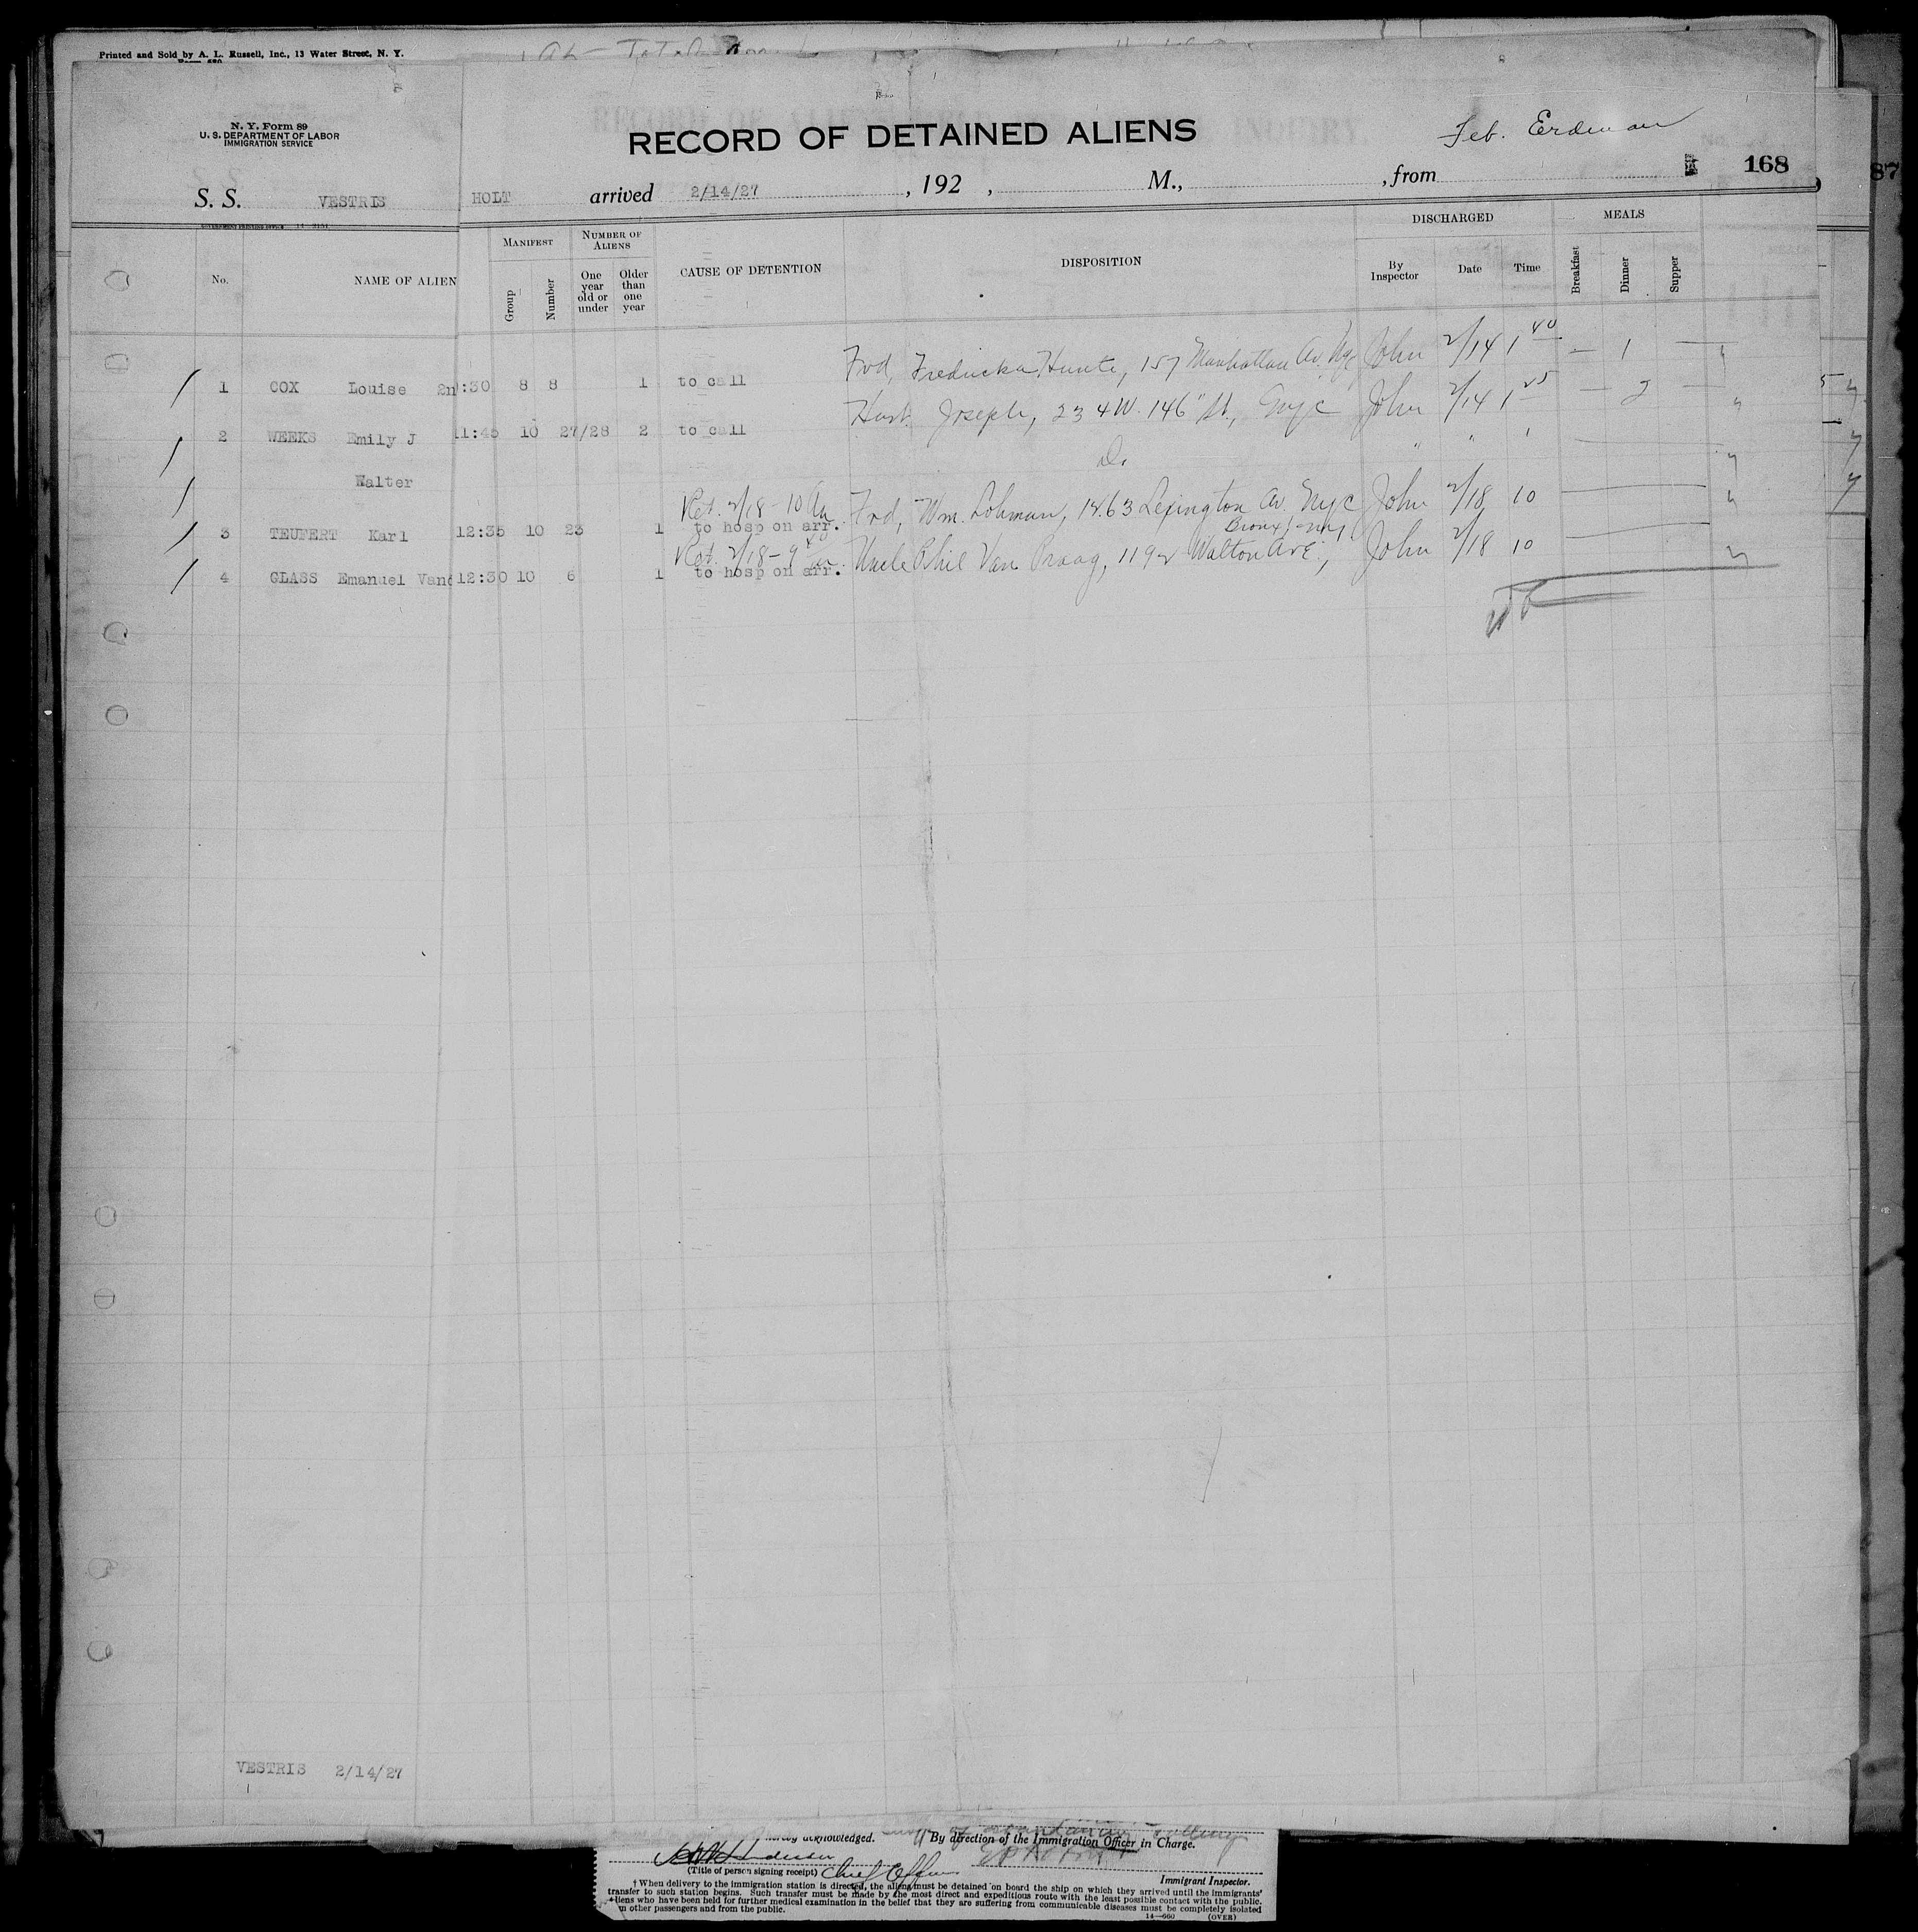 Printed and Sold by A. L. Russell, Inc., 13 Water Street, N. Y.
N. Y. Form 89
U. S. DEPARTMENT OF LABOR
IMMIGRATION SERVICE
RECORD OF DETAINED ALIENS
Feb. Erdman
168
87
S. S. VESTRIS HOLT arrived 2/14/27, 192 , M., , from
No. NAME OF ALIEN
MANIFEST
Group Number
NUMBER OF ALIENS
One year old or under
Older than one year
CAUSE OF DETENTION
DISPOSITION
DISCHARGED
By Inspector Date Time
MEALS
Breakfast Dinner Supper
1 COX Louise 2n :30 8 8 1 to call Frd, Fredricka Hunte, 157 Manhattan Av. Nyc John 2/14 1 40 — 1 —
2 WEEKS Emily J 11:45 10 27/28 2 to call Husb. Joseph, 234 W. 146" St., Nyc John 2/14 1 25 — 2 —
Walter Do. " " '
3 TEUFERT Karl 12:35 10 23 1 Ret. 2/18 - 10 Am to hosp on arr. Frd, Wm. Lohman, 1463 Lexington Av. Nyc John 2/18 10
4 GLASS Emanuel Vand 12:30 10 6 1 Ret. 2/18 - 9 to hosp on arr. Uncle Phil Van Praag, 1192 Walton Ave., Bronx, NY John 2/18 10
VESTRIS 2/14/27
acknowledged.
By direction of the Immigration Officer in Charge.
(Title of person signing receipt) Chief Officer
Immigrant Inspector.
† When delivery to the immigration station is directed, the aliens must be detained on board the ship on which they arrived until the immigrants'
transfer to such station begins. Such transfer must be made by the most direct and expeditious route with the least possible contact with the public.
Aliens who have been held for further medical examination in the belief that they are suffering from communicable diseases must be completely isolated
from other passengers and from the public.
14—660 (OVER)